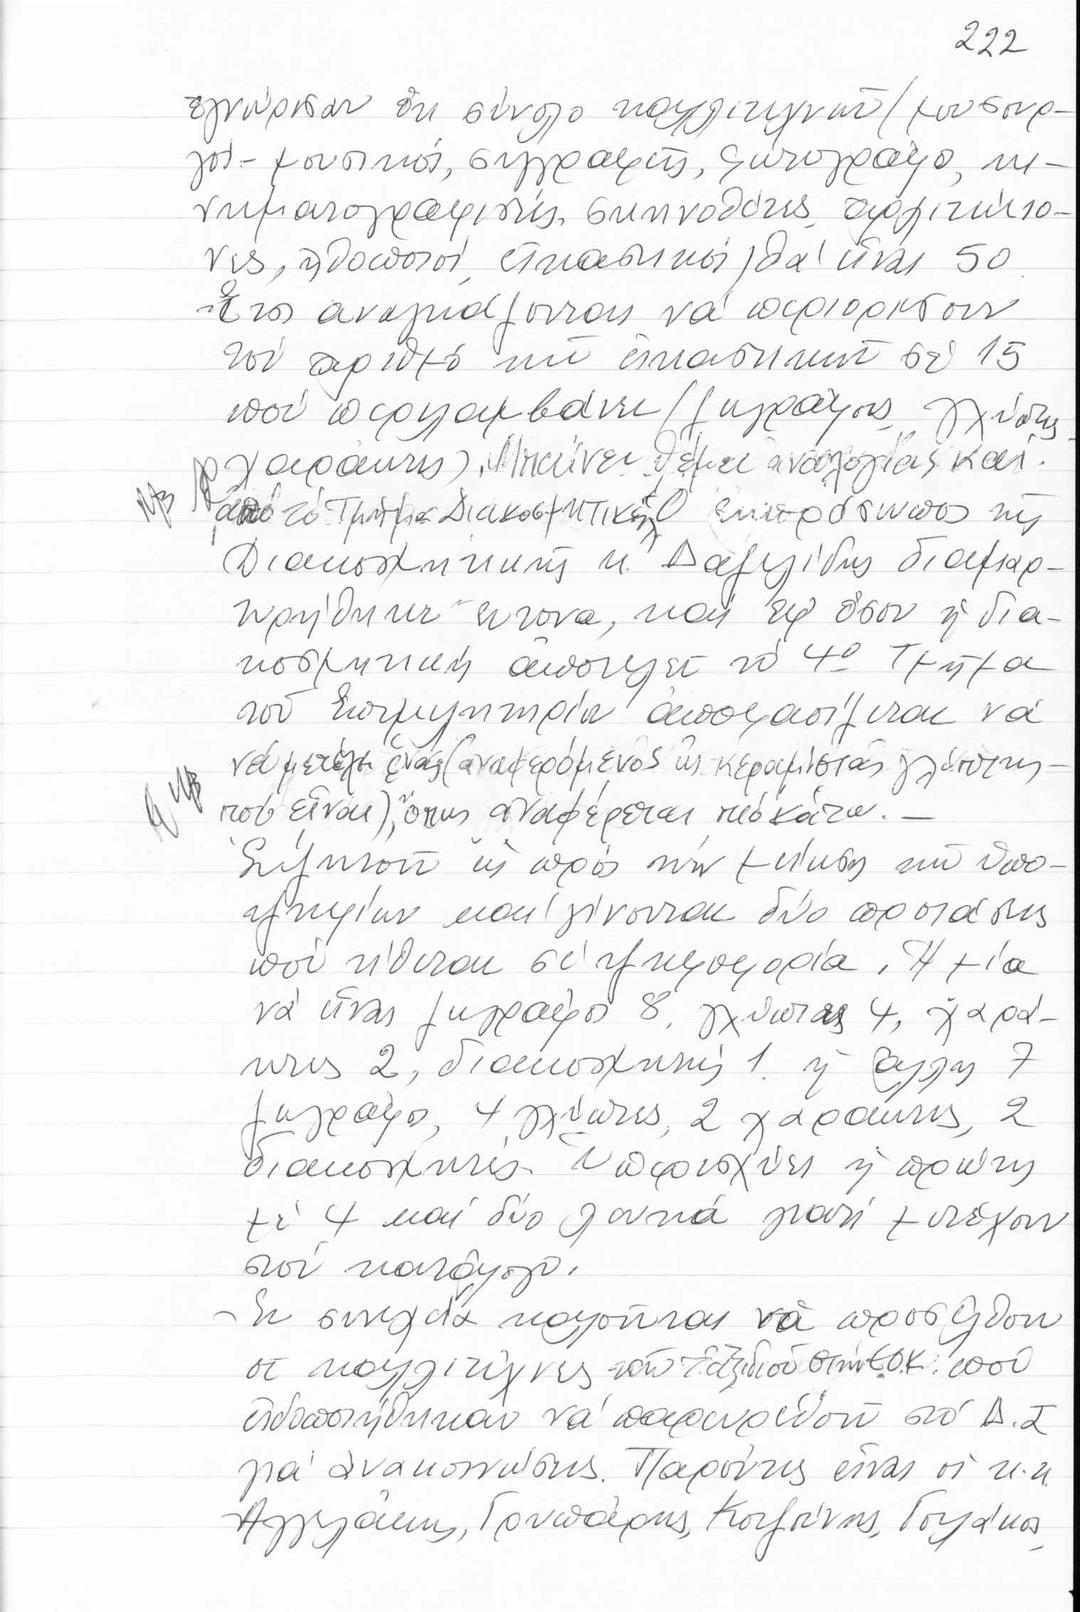 222
ἐγνώρισαν ὅτι σύνολο καλλιτεχνῶν (μουσουρ-
γοί - μουσικοί, συγγραφεῖς, φωτογράφοι, κι-
νηματογραφιστές, σκηνοθέτες, ἀρχιτέκτο-
νες, ἠθοποιοί, εἰκαστικοί) θά εἶναι 50
Ἔτσι ἀναγκάζονται νά περιορίσουν
τόν ἀριθμό τῶν εἰκαστικῶν σέ 15
πού περιλαμβάνει (ζωγράφους, γλύπτες,
χαράκτες). Μπαίνει θέμα ἀναλογίας καί
ἀπό τό Τμῆμα Διακοσμητικῆς Ὁ ἐκπρόσωπος τῆς
Διακοσμητικῆς κ. Δαμιλίδης διαμαρ-
τυρήθηκε ἔντονα, καί ἐφ' ὅσον ἡ δια-
κοσμητική ἀποτελεῖ τό 4ο Τμῆμα
τοῦ Ἐπιμελητηρίου ἀποφασίζεται νά
νά μετέχει ἕνας (ἀναφερόμενος ὡς κεραμίστας γλύπτης
πού εἶναι), ὅπως ἀναφέρεται πιό κάτω. -
Συζητοῦν ὡς πρός τήν μείωση τῶν ὑπο-
ψηφίων καί γίνονται δύο προτάσεις
πού τίθεται σέ ψηφοφορία. Ἡ μία
νά εἶναι ζωγράφοι 8, γλύπτες 4, χαρά-
κτες 2, διακοσμητής 1. ἡ ἄλλη 7
ζωγράφοι, 4 γλύπτες, 2 χαράκτες, 2
διακοσμητές. Ὑπερισχύει ἡ πρώτη
μέ 4 καί δύο λευκά γιατί μετέχουν
στόν κατάλογο.
- Ἐν συνεχεία καλοῦνται νά προσέλθουν
οἱ καλλιτέχνες τοῦ Ταξιδιοῦ στήν Ε.Ο.Κ. πού
εἰδοποιήθηκαν νά παρευρεθοῦν στό Δ.Σ
γιά ἀνακοινώσεις. Παρόντες εἶναι οἱ κ.κ.
Ἀγγελάκης, Γρυπάρης,